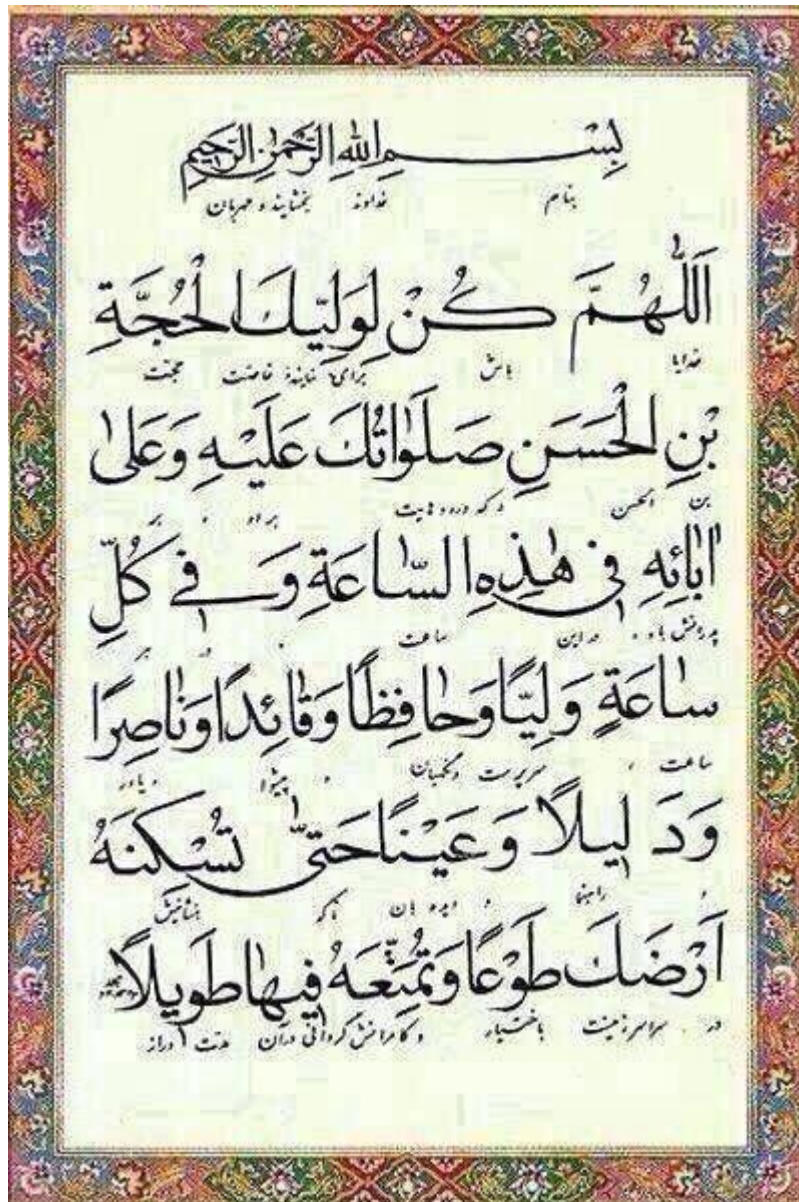 بِسْمِ اللهِ الرَّحْمٰنِ الرَّحِيمِ
بنام خداوند بخشاینده مهربان
اَللّٰهُمَّ كُنْ لِوَلِيِّكَ الْحُجَّةِ
خدایا باش برای نماینده خاصت حجت
بْنِ الْحَسَنِ صَلَوٰاتُكَ عَلَيْهِ وَعَلىٰ
بن الحسن که درودهایت بر او و بر
اٰبٰائِهِ فِي هٰذِهِ السّٰاعَةِ وَفِي كُلِّ
پدرانش باد در این ساعت و در هر
سٰاعَةٍ وَلِيًّا وَحٰافِظًا وَقٰائِدًا وَنٰاصِرًا
ساعت سرپرست و نگهبان و پیشوا و یاور
وَدَلِيلًا وَعَيْنًا حَتّىٰ تُسْكِنَهُ
و راهنما و دیده بان تا که بنشانیش
اَرْضَكَ طَوْعًا وَتُمَتِّعَهُ فِيهٰا طَوِيلًا
در سراسر زمینت باختیار و کامرانش گردانی در آن مدت دراز